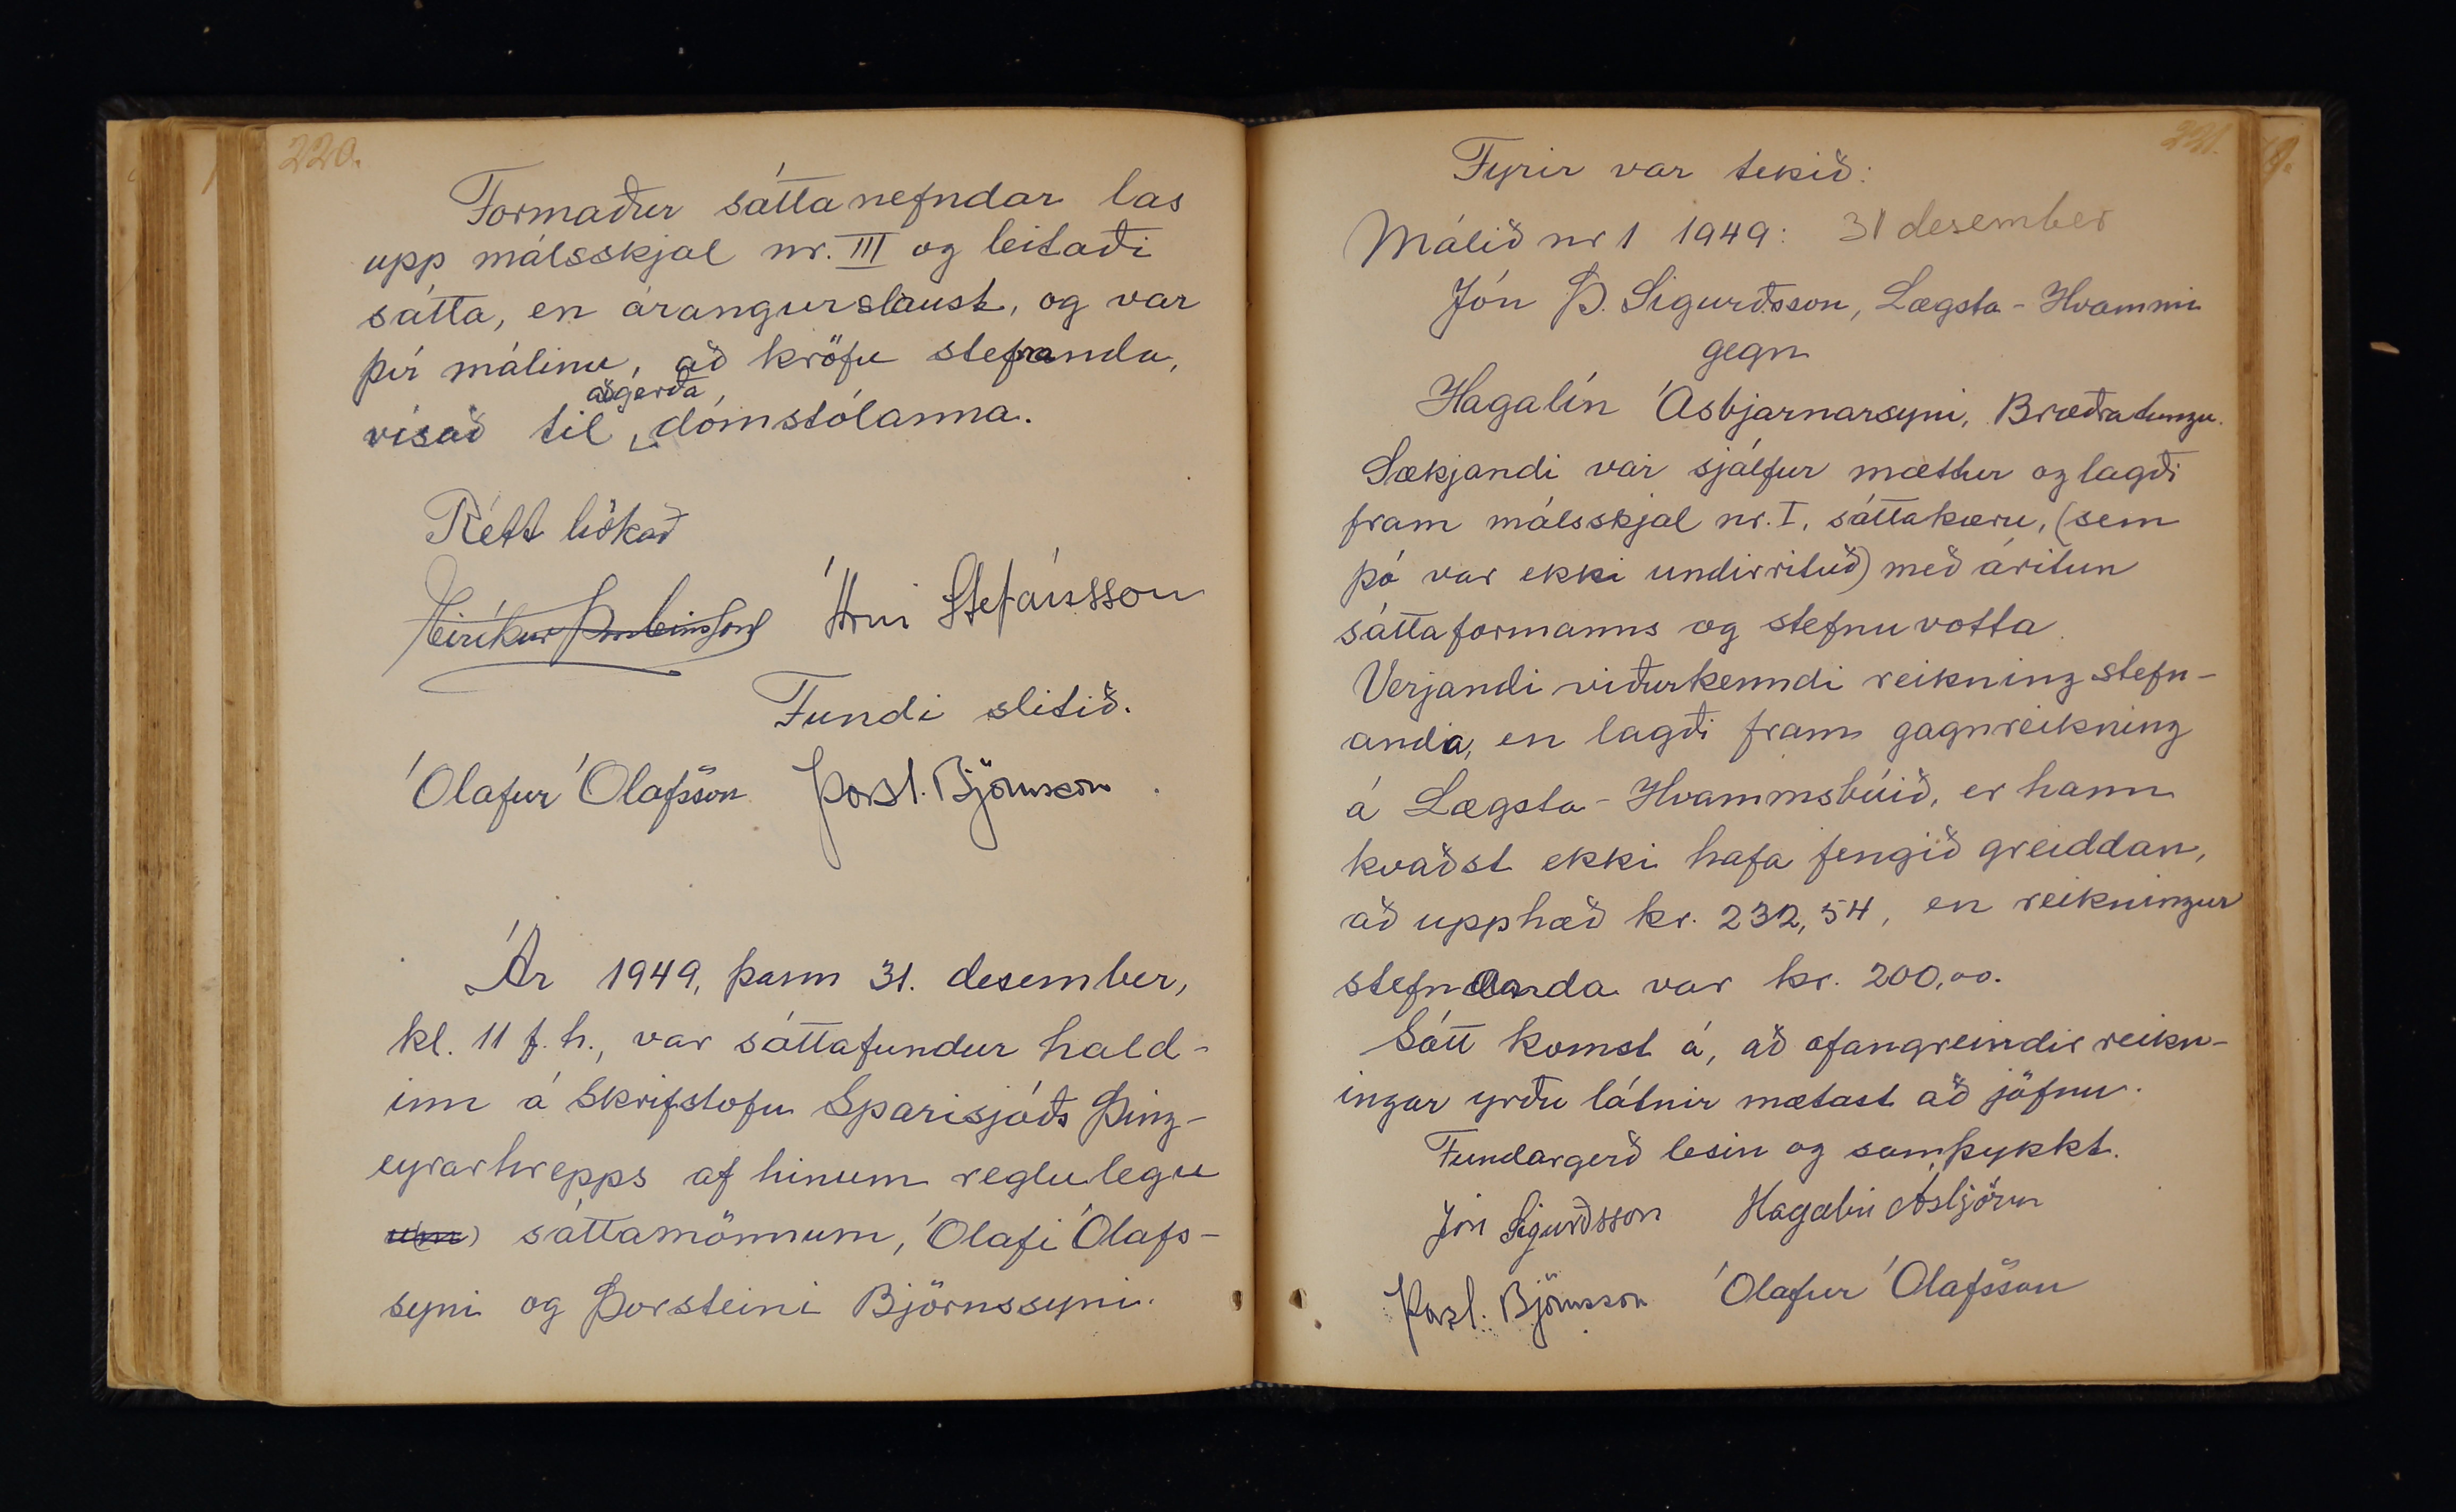 220.
Formaður sáttanefndar las
upp málsskjal nr. III og leitaði
sátta, en árangurslaust, og var
því málinu, að kröfu stefnanda,
aðgerða
vísað til dómstólanna.
Rétt bókað
Eiríkur Þorsteinsson Árni Stefánsson
Fundi slitið.
Ólafur Ólafsson Þorst. Björnsson
Ár 1949, þann 31. desember,
kl. 11 f.h., var sáttafundur hald-
inn á skrifstofu Sparisjóðs Þing-
eyrarhrepps af hinum reglulegu
sáttamönnum, Ólafi Ólafs-
syni og Þorsteini Björnssyni.
221.
Fyrir var tekið:
Málið nr 1 1949: 31 desember
Jón Þ. Sigurðsson, Lægsta-Hvammi
gegn
Hagalín Ásbjarnarsyni, Bræðratungu.
Sækjandi var sjálfur mættur og lagði
fram málsskjal nr. I, sáttakæru, (sem
þó var ekki undirrituð) með áritun
sáttaformanns og stefnuvotta.
Verjandi viðurkenndi reikning stefn-
anda, en lagði fram gagnreikning
á Lægsta-Hvammsbúið, er hann
kvaðst ekki hafa fengið greiddan,
að upphæð kr. 232,54, en reikningur
stefnanda var kr. 200,00.
Sátt komst á, að ofangreindir reikn-
ingar yrðu látnir mætast að jöfnu.
Fundargerð lesin og samþykkt.
Jón Sigurðsson Hagalín Ásbjörn
Þorst. Björnsson Ólafur Ólafsson